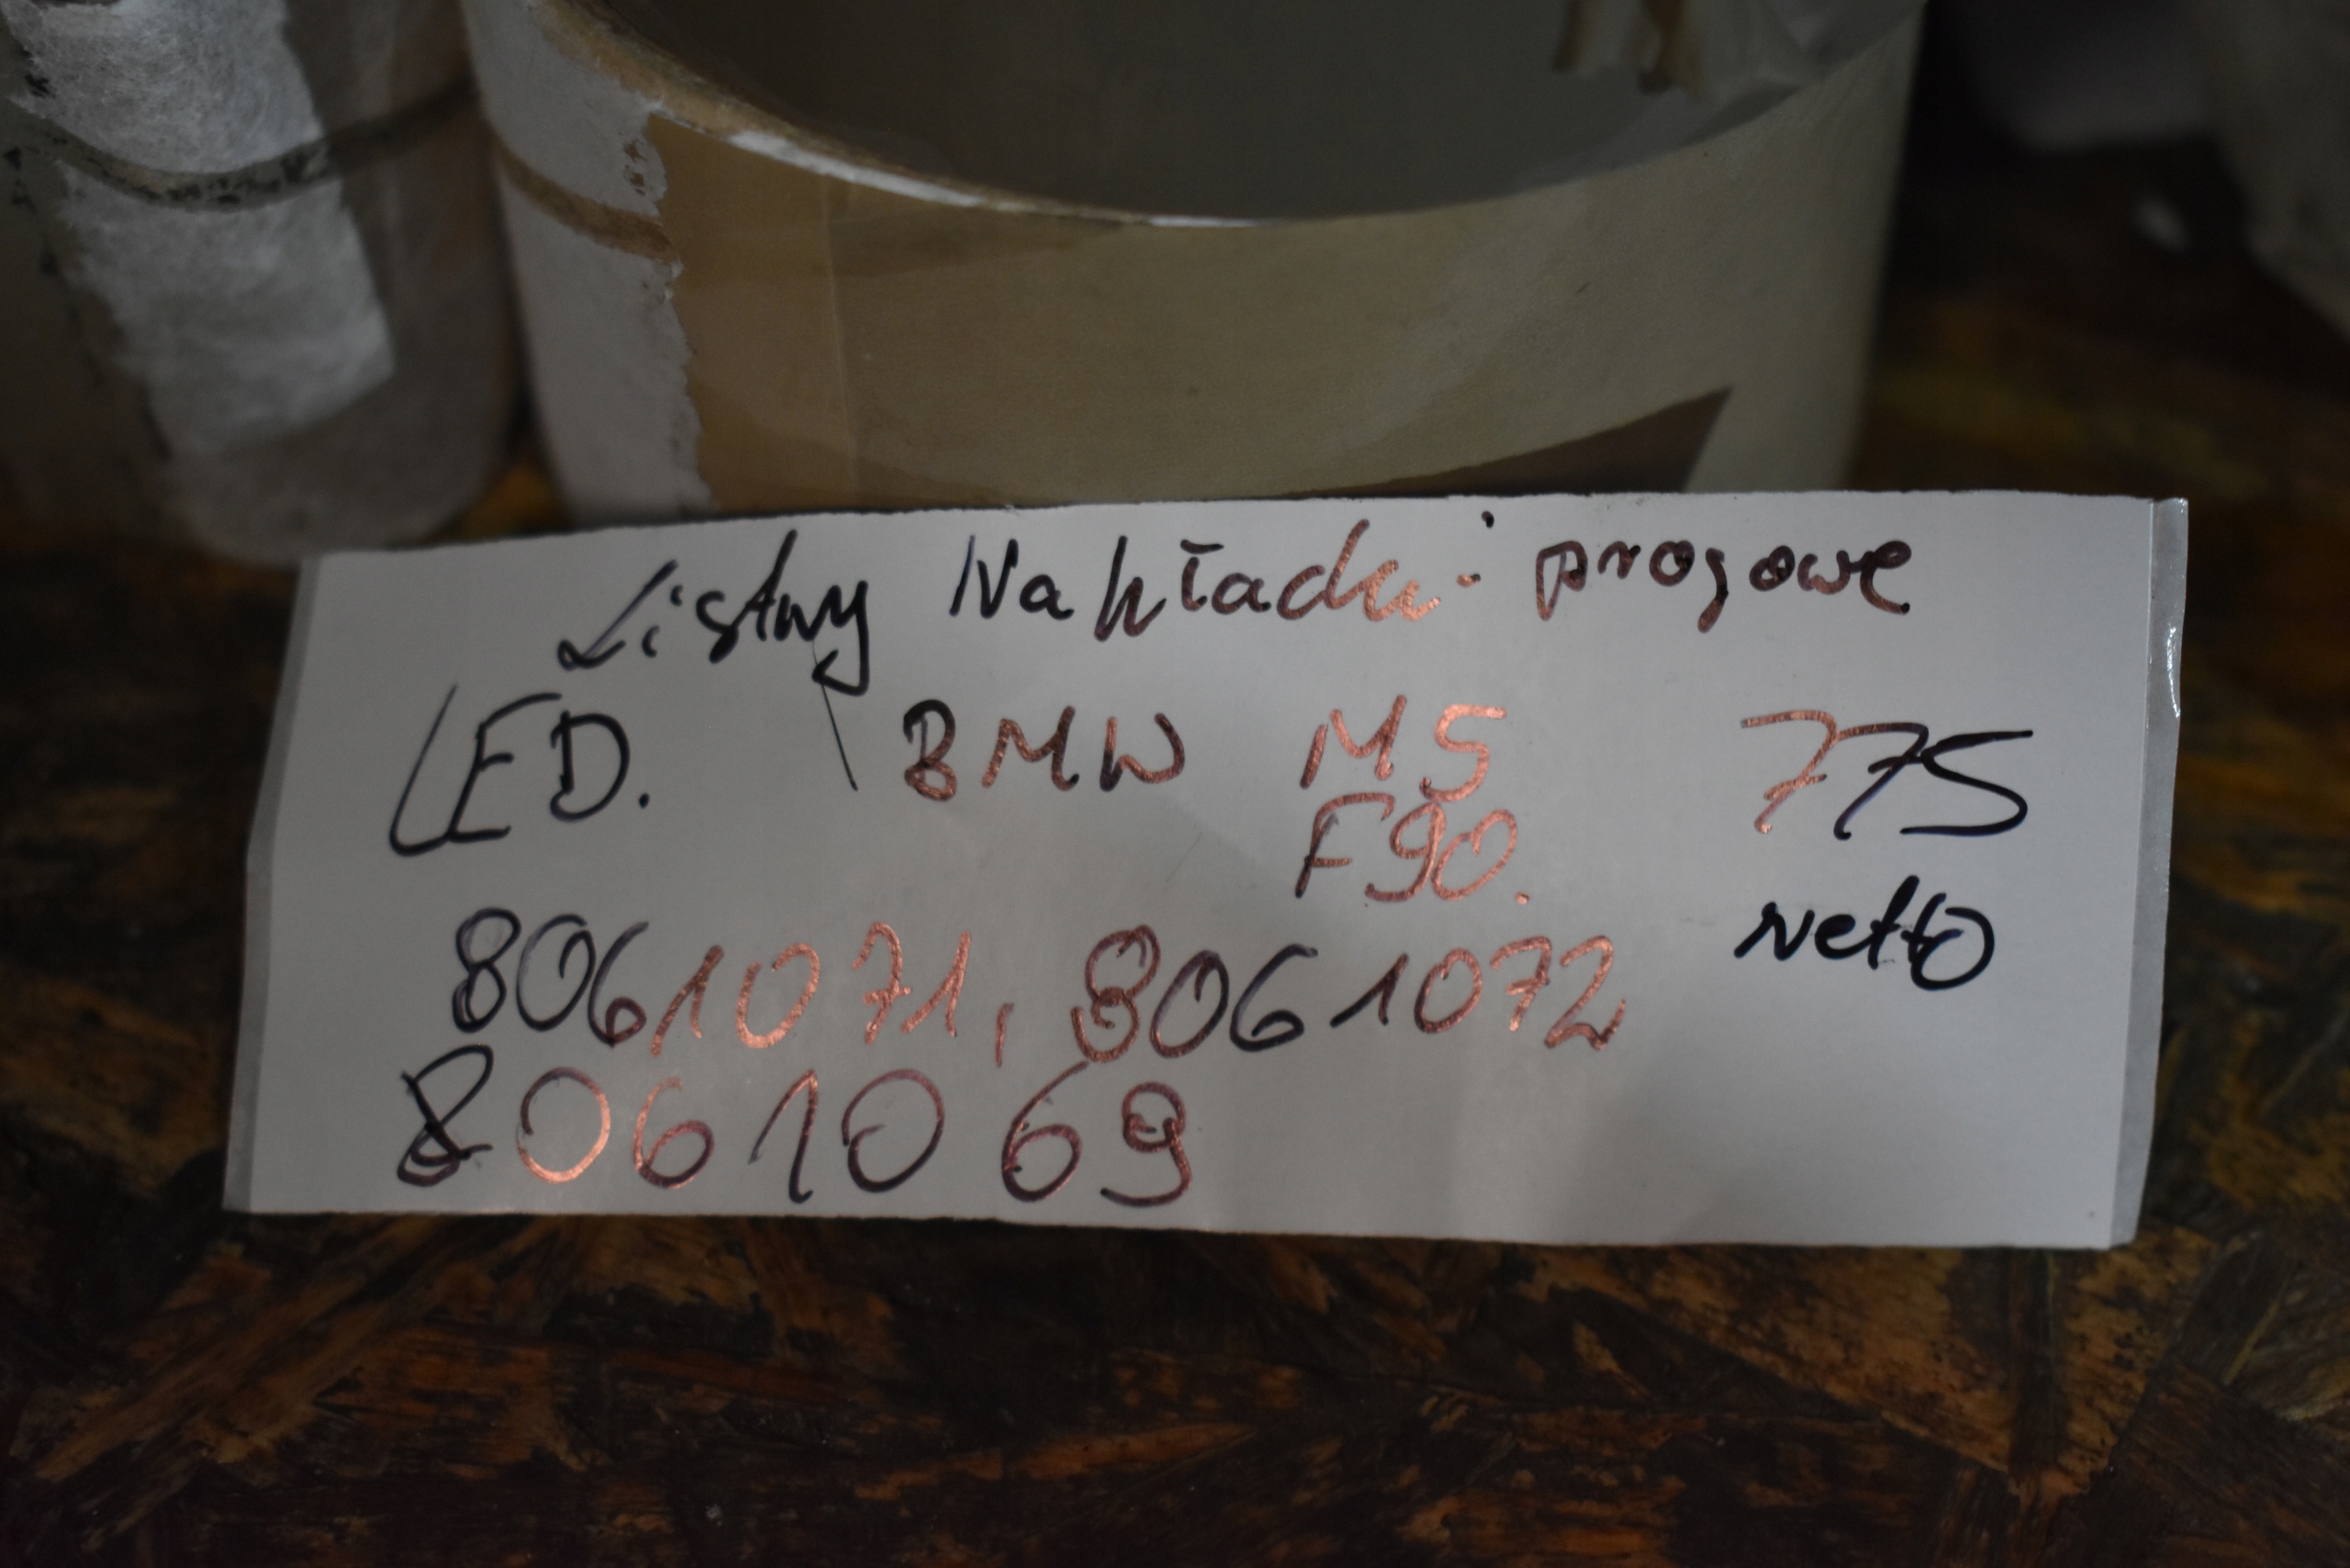 Listwy Nakładki progowe
LED. BMW M5 775
F90.
netto
8061071, 8061072
8061069